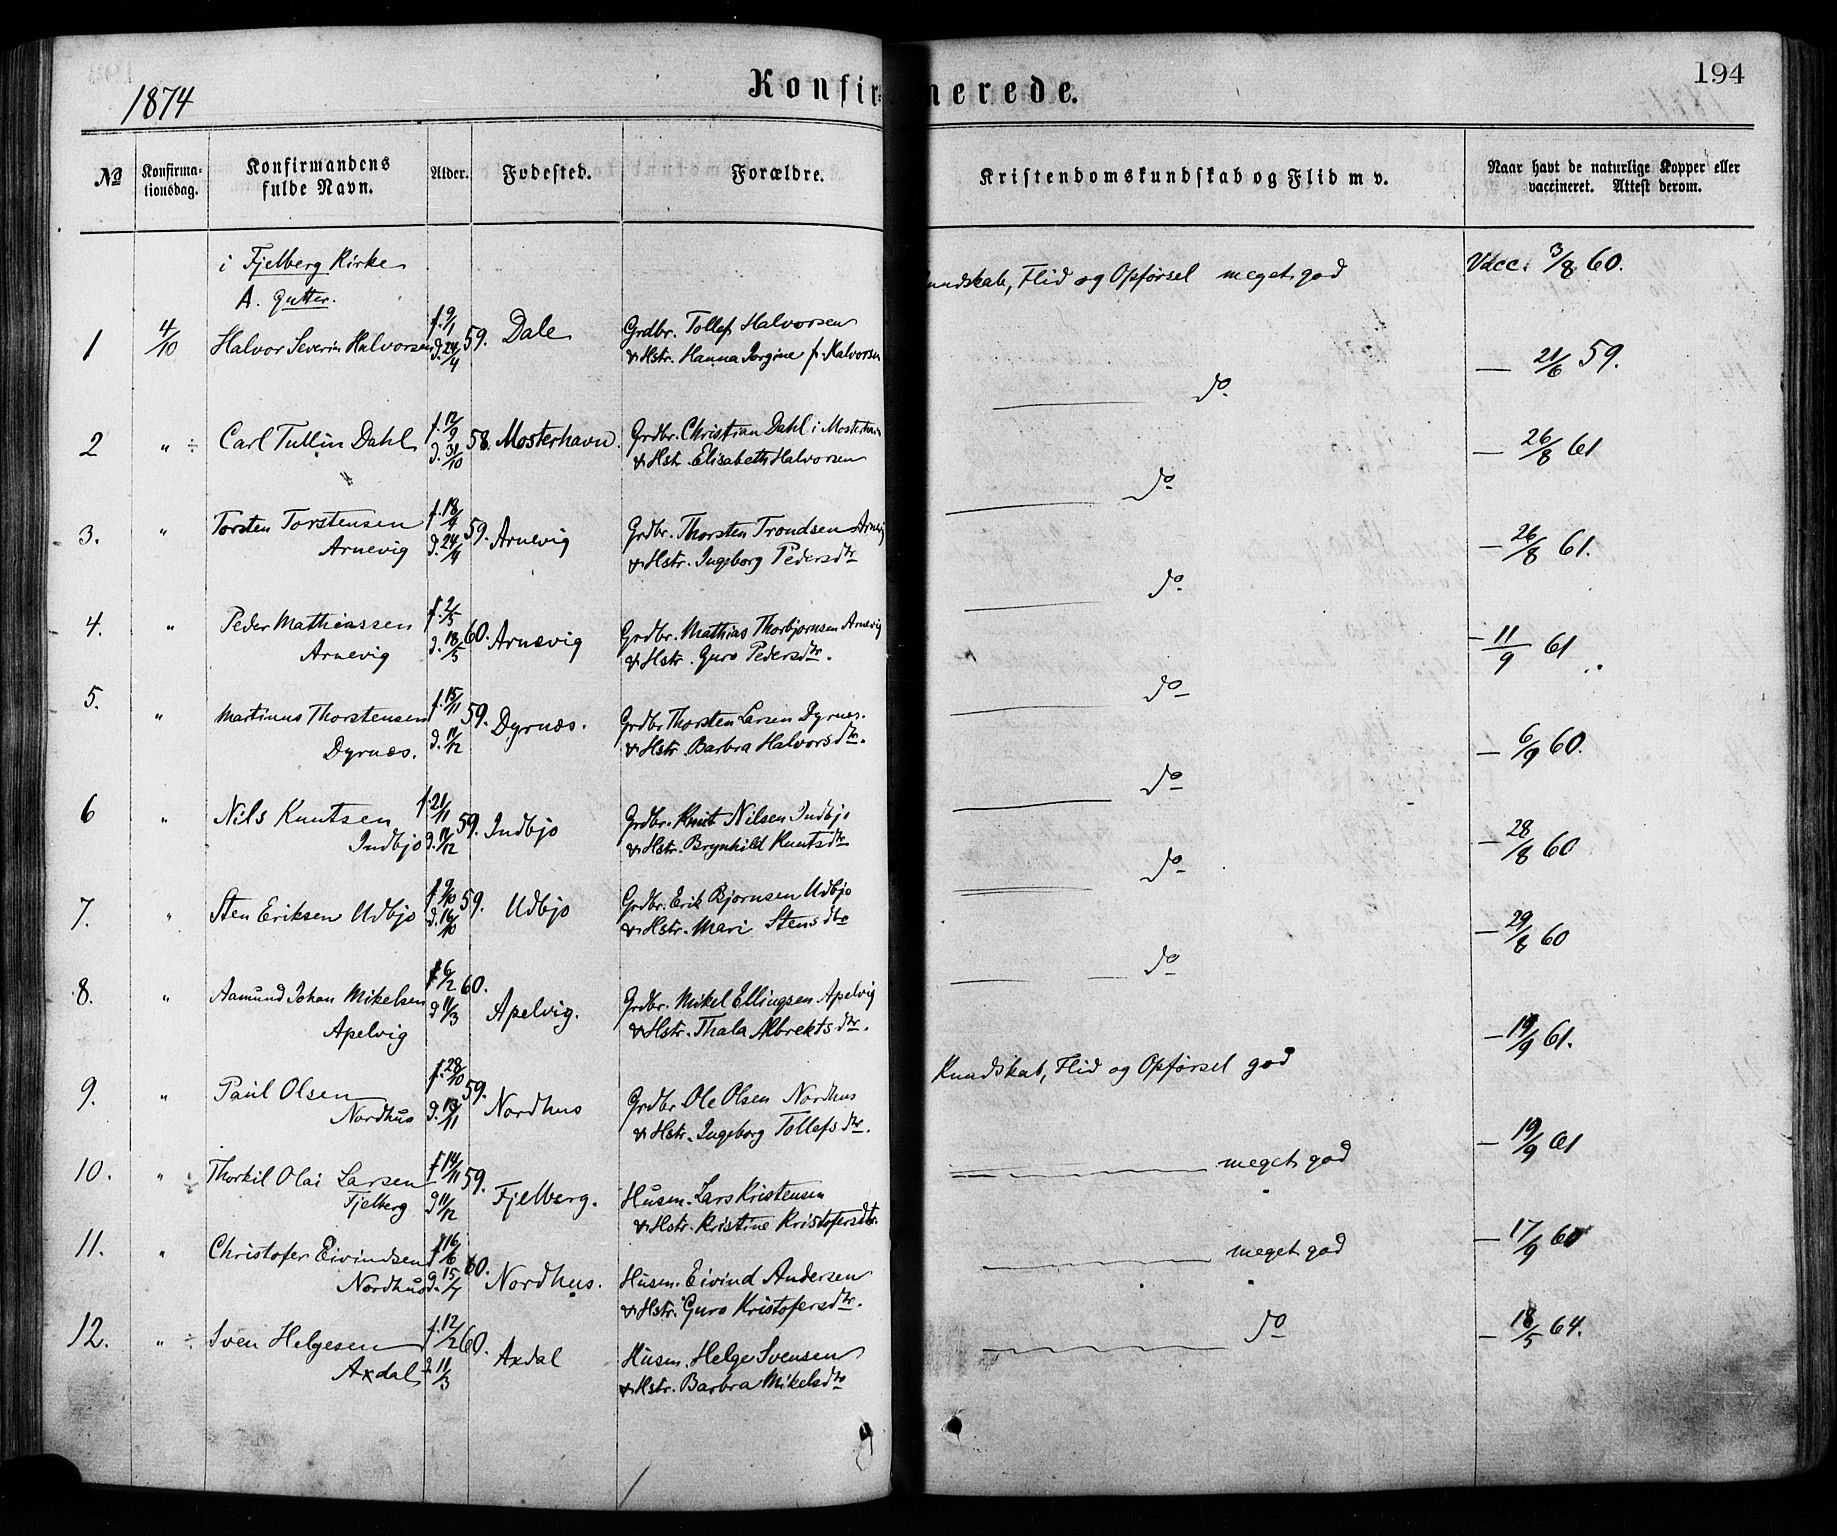 1874
Konfir=
merede.
194
No
Konfirma-
tionsdag.
Konfirmandens
fulde Navn.
Alder.
Fødested.
Forældre.
Kristendomskundskab og Flid m v.
Naar havt de naturlige Kopper eller
vaccineret. Attest derom.
i Fjelberg Kirke
A. Gutter.
1 4/10 Halvor Severin Halvorsen f. 9/1 d. 24/4 59. Dale
Grdbr. Tollef Halvorsen
& Hstr. Hanna Jorgine f. Halvorsen
Kundskab, Flid og Opførsel meget god
Vacc. 3/8 60.
2 " ÷ Carl Tullin Dahl f. 12/9 d. 31/10 58. Mosterhavn.
Grdbr. Christian Dahl i Mosterhavn
& Hstr. Elisabeth Halvorsen
— do
— 21/6 59.
3. " Torsten Torstensen
Arnevig
f. 18/4 d. 24/4 59. Arnevig
Grdbr. Thorsten Trondsen Arnevig
& Hstr. Ingeborg Pedersdtr
— do
— 26/8 61
4. " Peder Mathiassen
Arnevig
f. 2/5 d. 18/5 60. Arnevig
Grdbr. Mathias Thorbjørnsen Arnevig
& Hstr. Guro Pedersdtr.
— do
— 26/8 61.
5. " Martinus Thorstensen
Dyrnæs.
f. 15/11 d. 11/12 59. Dyrnæs.
Grdbr Thorsten Larsen Dyrnæs.
& Hstr. Barbra Halvorsdtr.
— do
— 11/9 61
6 " Nils Knutsen
Indbjo
f. 21/11 d. 11/12 59. Indbjo
Grdbr. Knut Nilsen Indbjo
& Hstr. Brynhild Knutsdtr
— do
— 6/9 60.
7. " Sten Eriksen Udbjo f. 9/10 d. 16/10 59. Udbjo
Grdbr. Erik Bjørnsen Udbjo
& Hstr. Mari Stensdtr
— do
— 28/8 60
8. " Aamund Johan Mikelsen
Apelvig
f. 6/2 d 11/3 60. Apelvig.
Grdbr. Mikel Ellingsen Apelvig
& Hstr. Thala Albrektsdtr.
— do
— 29/8 60
9. " Paul Olsen
Nordhus
f. 28/10 d. 13/11 59. Nordhus
Grdbr Ole Olsen Nordhus
& Hstr. Ingeborg Tollefsdtr.
Kundskab, Flid og Opførsel god
— 19/9 61.
10. " ÷ Thorkil Olai Larsen
Fjelberg
f 14/11 d 11/12 59. Fjelberg.
Husm. Lars Kristensen
& Hstr. Kristine Kristofersdtr.
— meget god
— 19/9 61
11. " Christofer Eivindsen
Nordhus
f 16/6 d. 15/7 60. Nordhus.
Husm. Eivind Andersen
& Hstr. Guro Kristofersdtr.
— meget god
— 17/9 60
12. " ÷ Sven Helgesen
Axdal
f. 12/2 d 11/3 60. Axdal
Husm. Helge Svensen
& Hstr. Barbra Mikelsdtr
— do
— 18/5 64.